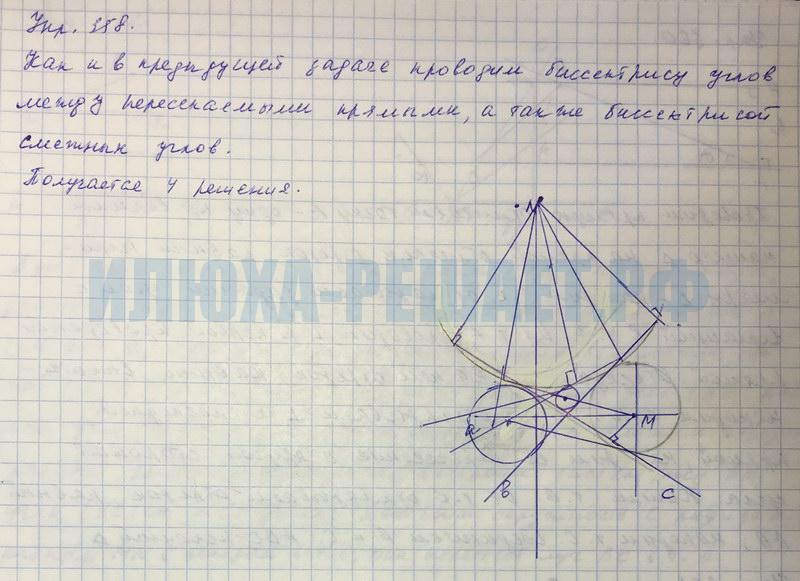 Упр. 358.
Как и в предыдущей задаче проводим биссектрису углов
между пересекаемыми прямыми, а также биссектрисой
смежных углов.
Получается 4 решения.
N
ИЛЮХА-РЕШАЕТ.РФ
M
B
C